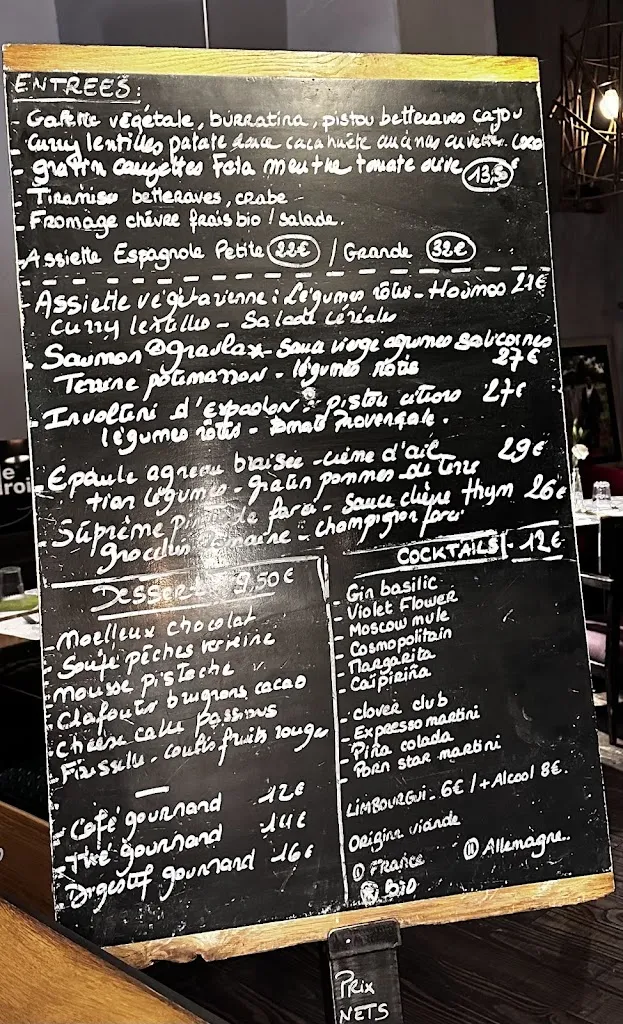 ENTREES:
- Galette végétale, burratina, pistou betteraves cajou
- Curry lentilles patate douce cacahuète ananas crevettes. coco
- gratin courgettes Feta menthe tomate olive 13,50 €
- Tiramisu betteraves, crabe
- Fromage chèvre frais bio / salade.
- Assiette Espagnole Petite 22€ / Grande 32€
- Assiette végétarienne: Légumes rôtis - Houmos 21€
curry lentilles - Salade céréales
- Saumon Gravlax - Sauce vierge agrumes salicornes
Terrine potimarron - légumes rotis 27€
- Involtini d'espadon - pistou citrons 27€
légumes rôtis - provençale.
- Epaule agneau braisée - crème d'ail 29€
tian légumes - gratin pommes de terre
- Suprême - Sauce chèvre thym 26€
- champignon farci
DESSERT 9,50€
- Moelleux chocolat
- Soupe pêches verveine
- Mousse pistache
- Clafoutis brugnons cacao
- Cheese cake passions
- Faisselle - coulis fruits rouges
- Café gourmand 12€
- Thé gourmand 14€
- Digestif gourmand 16€
COCKTAILS - 12€
- Gin basilic
- Violet Flower
- Moscow mule
- Cosmopolitain
- Margarita
- Caïpiriña
- clover club
- Expresso martini
- Piña colada
- Porn star martini
LIMBOURGUI - 6€ / + Alcool 8€.
Origine viande
① France ⑪ Allemagne..
bio
Prix
NETS